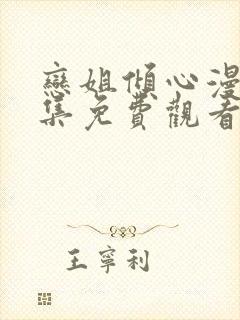 戀姐傾心漫
集免費觀看
王寧利